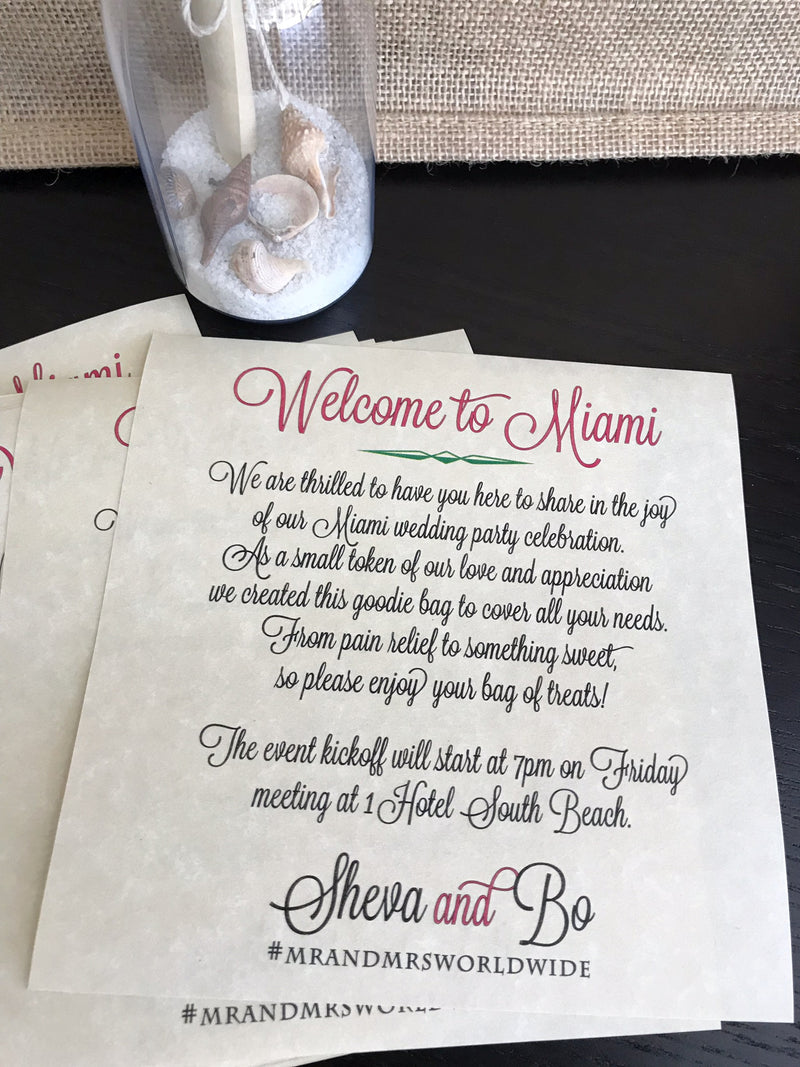 Welcome to Miami
We are thrilled to have you here to share in the joy
of our Miami wedding party celebration.
As a small token of our love and appreciation
we created this goodie bag to cover all your needs.
From pain relief to something sweet,
so please enjoy your bag of treats!
The event kickoff will start at 7pm on Friday
meeting at 1 Hotel South Beach.
Sheva and Bo
#MRANDMRSWORLDWIDE